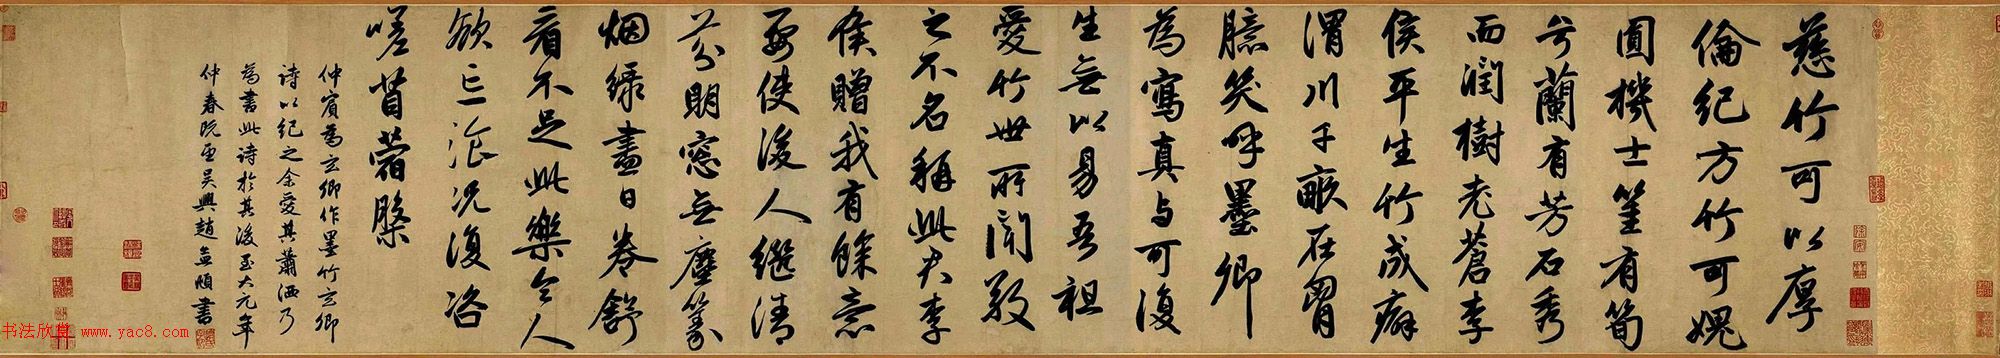 慈竹可以厚
倫紀方竹可媿
圓機士篁有筍
兮蘭有芳石秀
而潤樹老蒼李
侯平生竹成癖
渭川千畝在胷
臆笑呼墨卿
為寫真与可復
生無以易吾祖
愛竹世所聞敎
之不名稱此君李
侯贈我有餘意
要使後人繼清
芬明窓無塵篆
烟綠盡日卷舒
看不足此樂令人
欲忘飡況復咨
嗟苜蓿槃
仲賓為玄卿作墨竹玄卿
詩以紀之余愛其蕭洒乃
為書此詩於其後至大元年
仲春既望吳興趙孟頫書
书法欣赏 www.yac8.com